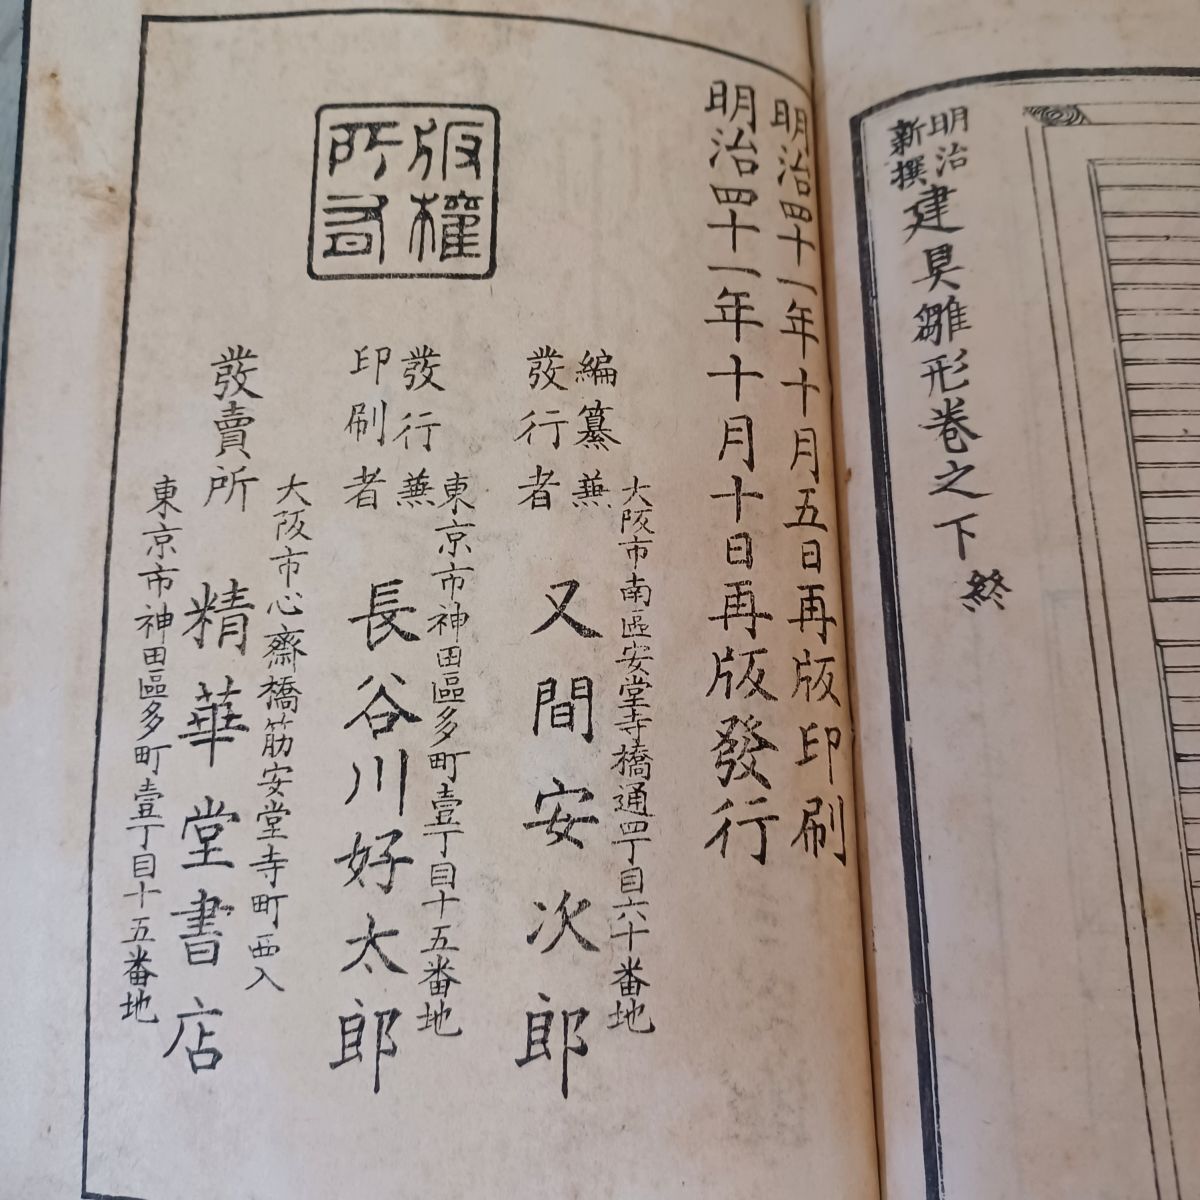 明治
新撰
建具雛形巻之下終
明治四十一年十月五日再版印刷
明治四十一年十月十日再版發行
版權
所有
大阪市南區安堂寺橋通四丁目六十番地
編纂兼
發行者
又間安次郎
東京市神田區多町壹丁目十五番地
發行兼
印刷者
長谷川好太郎
大阪市心齋橋筋安堂寺町西入
發賣所
精華堂書店
東京市神田區多町壹丁目十五番地